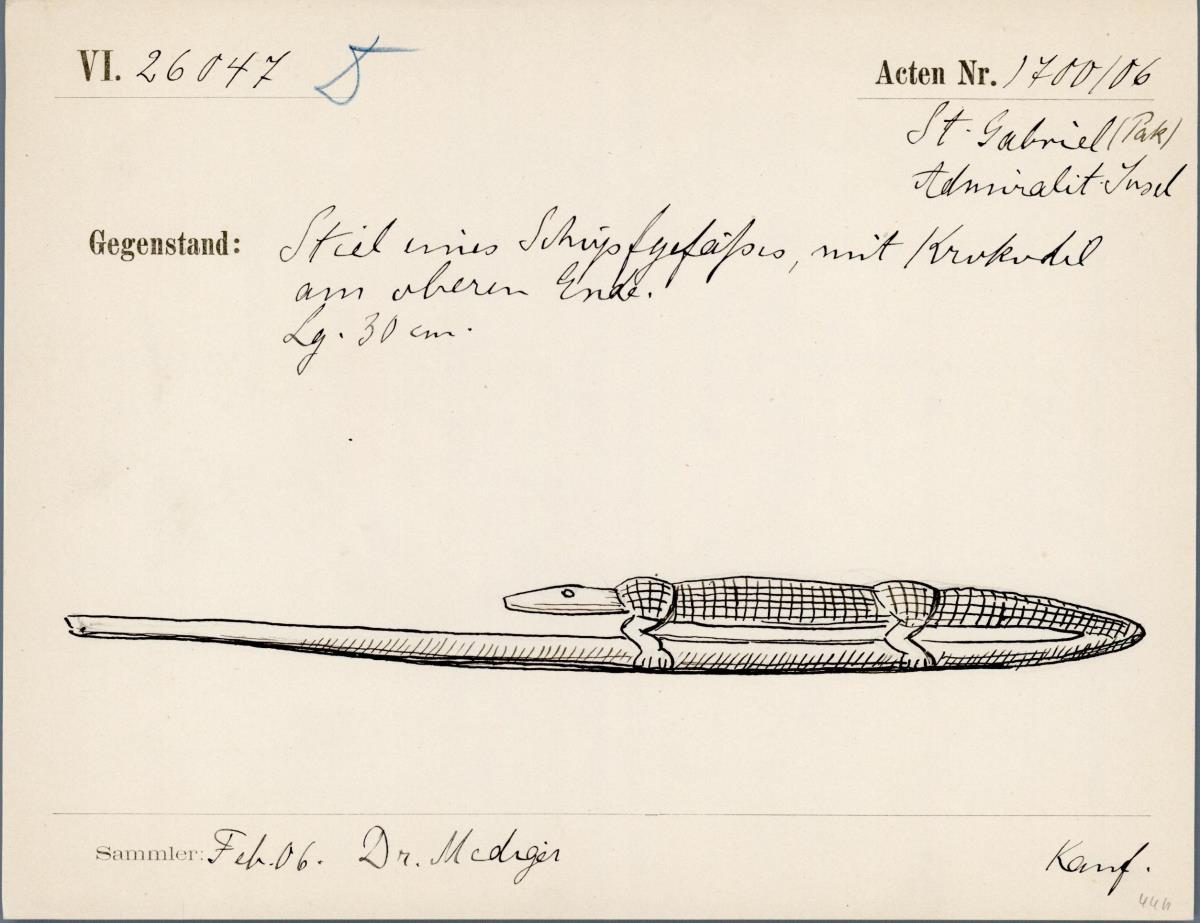 VI. 26047
Acten Nr. 1700/06
St. Gabriel (Pak)
Admiralit. Insel
Gegenstand: Stiel eines Schöpfgefäßes, mit Krokodil
am oberen Ende.
Lg. 30 cm.
Sammler: Feb. 06. Dr. Mediger
Kauf.